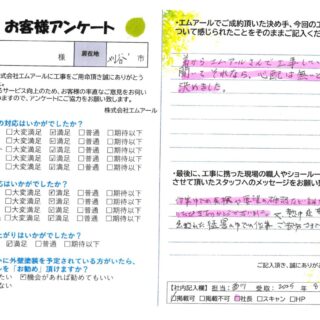 お客様アンケート
様 居住地 刈谷 市
株式会社エムアールに工事をご用命頂き誠にありがとう
サービス向上のため、お客様の率直なご意見をお伺い
ますので、アンケートにご協力をお願い致します。
株式会社エムアール
の対応はいかがでしたか？
□大変満足 ☑満足 □普通 □期待以下
□大変満足 ☑満足 □普通 □期待以下
□大変満足 ☑満足 □普通 □期待以下
□大変満足 ☑満足 □普通 □期待以下
はいかがでしたか？
□大変満足 ☑満足 □普通 □期待以下
□大変満足 ☑満足 □普通 □期待以下
□大変満足 ☑満足 □普通 □期待以下
□大変満足 ☑満足 □普通 □期待以下
上がりはいかがでしたか？
□大変満足 ☑満足 □普通 □期待以下
かに外壁塗装を予定されている方がいたら、
ルを「お勧め」頂けますか？
たい ☑機会があれば勧めてもいい
ない
・エムアールでご成約頂いた決め手、今回の工
ついて感じられたことをそのままご記入くださ
前からエムアールさんで工事してい
聞いてそれなら、心配は無いと
決めました。
・最後に、工事に携った現場の職人やショールー
させて頂いたスタッフへのメッセージをお願い
ご記入頂き、誠にありがと
【社内記入欄】担当: 受取: 2025 8
☑掲載可 □掲載不可 □スキャン □HP